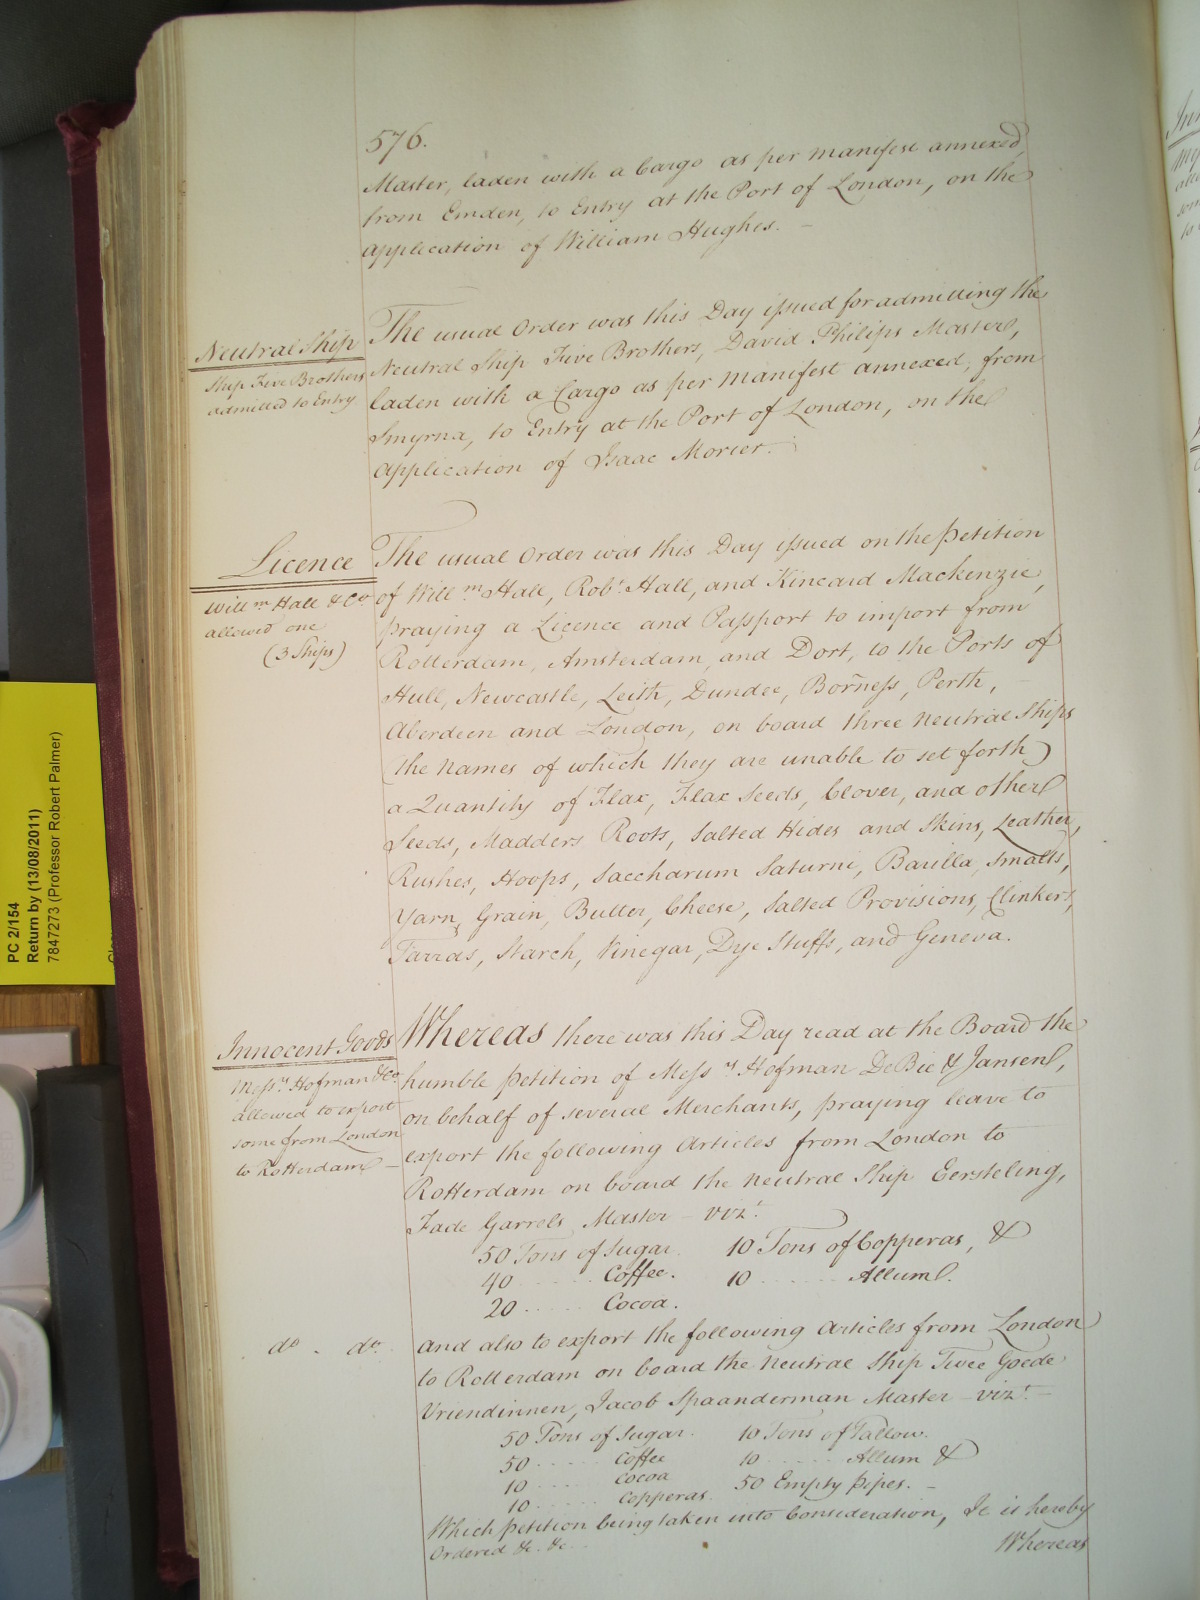 576.
Master, laden with a Cargo as per manifest annexed,
from Emden, to Entry at the Port of London, on the
application of William Hughes. –
Neutral Ship
Ship Five Brothers
admitted to Entry
The usual Order was this Day issued for admitting the
Neutral Ship Five Brothers, David Philips Master,
laden with a Cargo as per Manifest annexed, from
Smyrna, to Entry at the Port of London, on the
application of Isaac Morier.
Licence
Willm Hall & Co
allowed one
(3 Ships)
The usual Order was this Day issued on the Petition
of Willm Hall, Robt Hall, and Kincaid Mackenzie,
praying a Licence and Passport to import from
Rotterdam, Amsterdam, and Dort, to the Ports of
Hull, Newcastle, Leith, Dundee, Borness, Perth, –
Aberdeen and London, on board three Neutral Ships
(the Names of which they are unable to set forth)
a Quantity of Flax, Flax Seeds, Clover, and other
Seeds, Madders Roots, Salted Hides and Skins, Leather,
Rushes, Hoops, Saccharum Saturni, Barilla, Smalts,
Yarn, Grain, Butter, Cheese, Salted Provisions, Clinkers,
Tarras, Starch, Vinegar, Dye Stuffs, and Geneva.
Innocent Goods
Messrs Hofman & Co
allowed to export
some from London
to Rotterdam –
Whereas there was this Day read at the Board the
humble Petition of Messrs Hofman De Bie & Jansen,
on behalf of several Merchants, praying leave to
export the following Articles from London to
Rotterdam on board the Neutral Ship Eersteling,
Jade Garrels Master – vizt
50 Tons of Sugar. 10 Tons of Copperas, &
40 ...... Coffee. 10 ...... Allum.
20 ...... Cocoa.
do . do
And also to export the following Articles from London
to Rotterdam on board the Neutral Ship Twee Goede
Vriendinnen, Jacob Spaanderman Master – vizt –
50 Tons of Sugar. 10 Tons of Tallow.
50 ...... Coffee 10 ...... Allum &
10 ...... Cocoa 50 Empty Pipes. –
10 ...... Copperas
Which Petition being taken into Consideration, It is hereby
Ordered &c. &c
Whereas
PC 2/154
Return by (13/08/2011)
7847273 (Professor Robert Palmer)